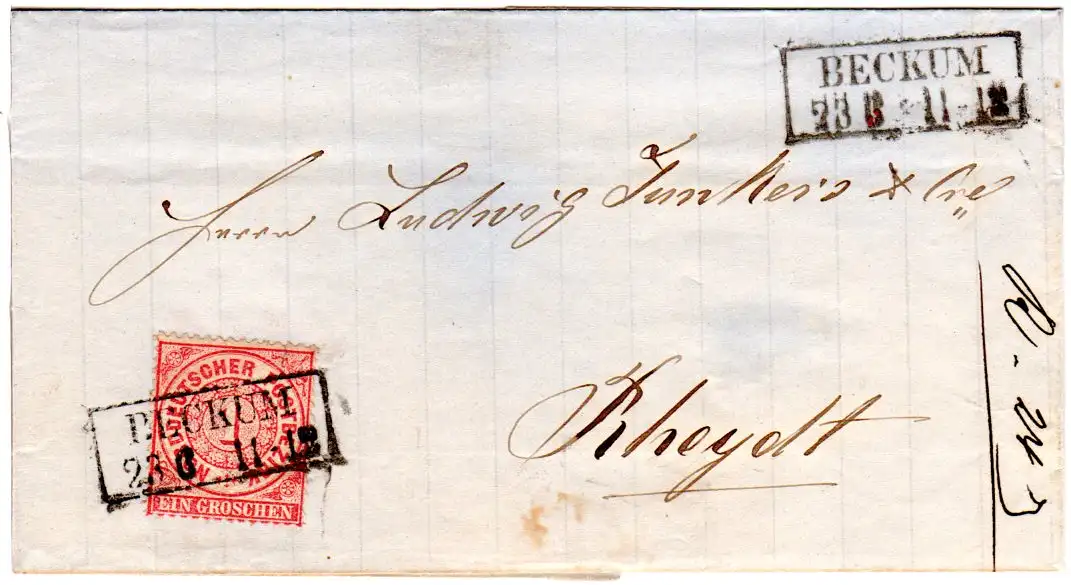 BECKUM
23 6 * 11-12
Herrn Ludwig Junkers & Cie
Rheydt
NORDDEUTSCHER POSTBEZIRK
1
EIN GROSCHEN
BECKUM
23 6 11-12